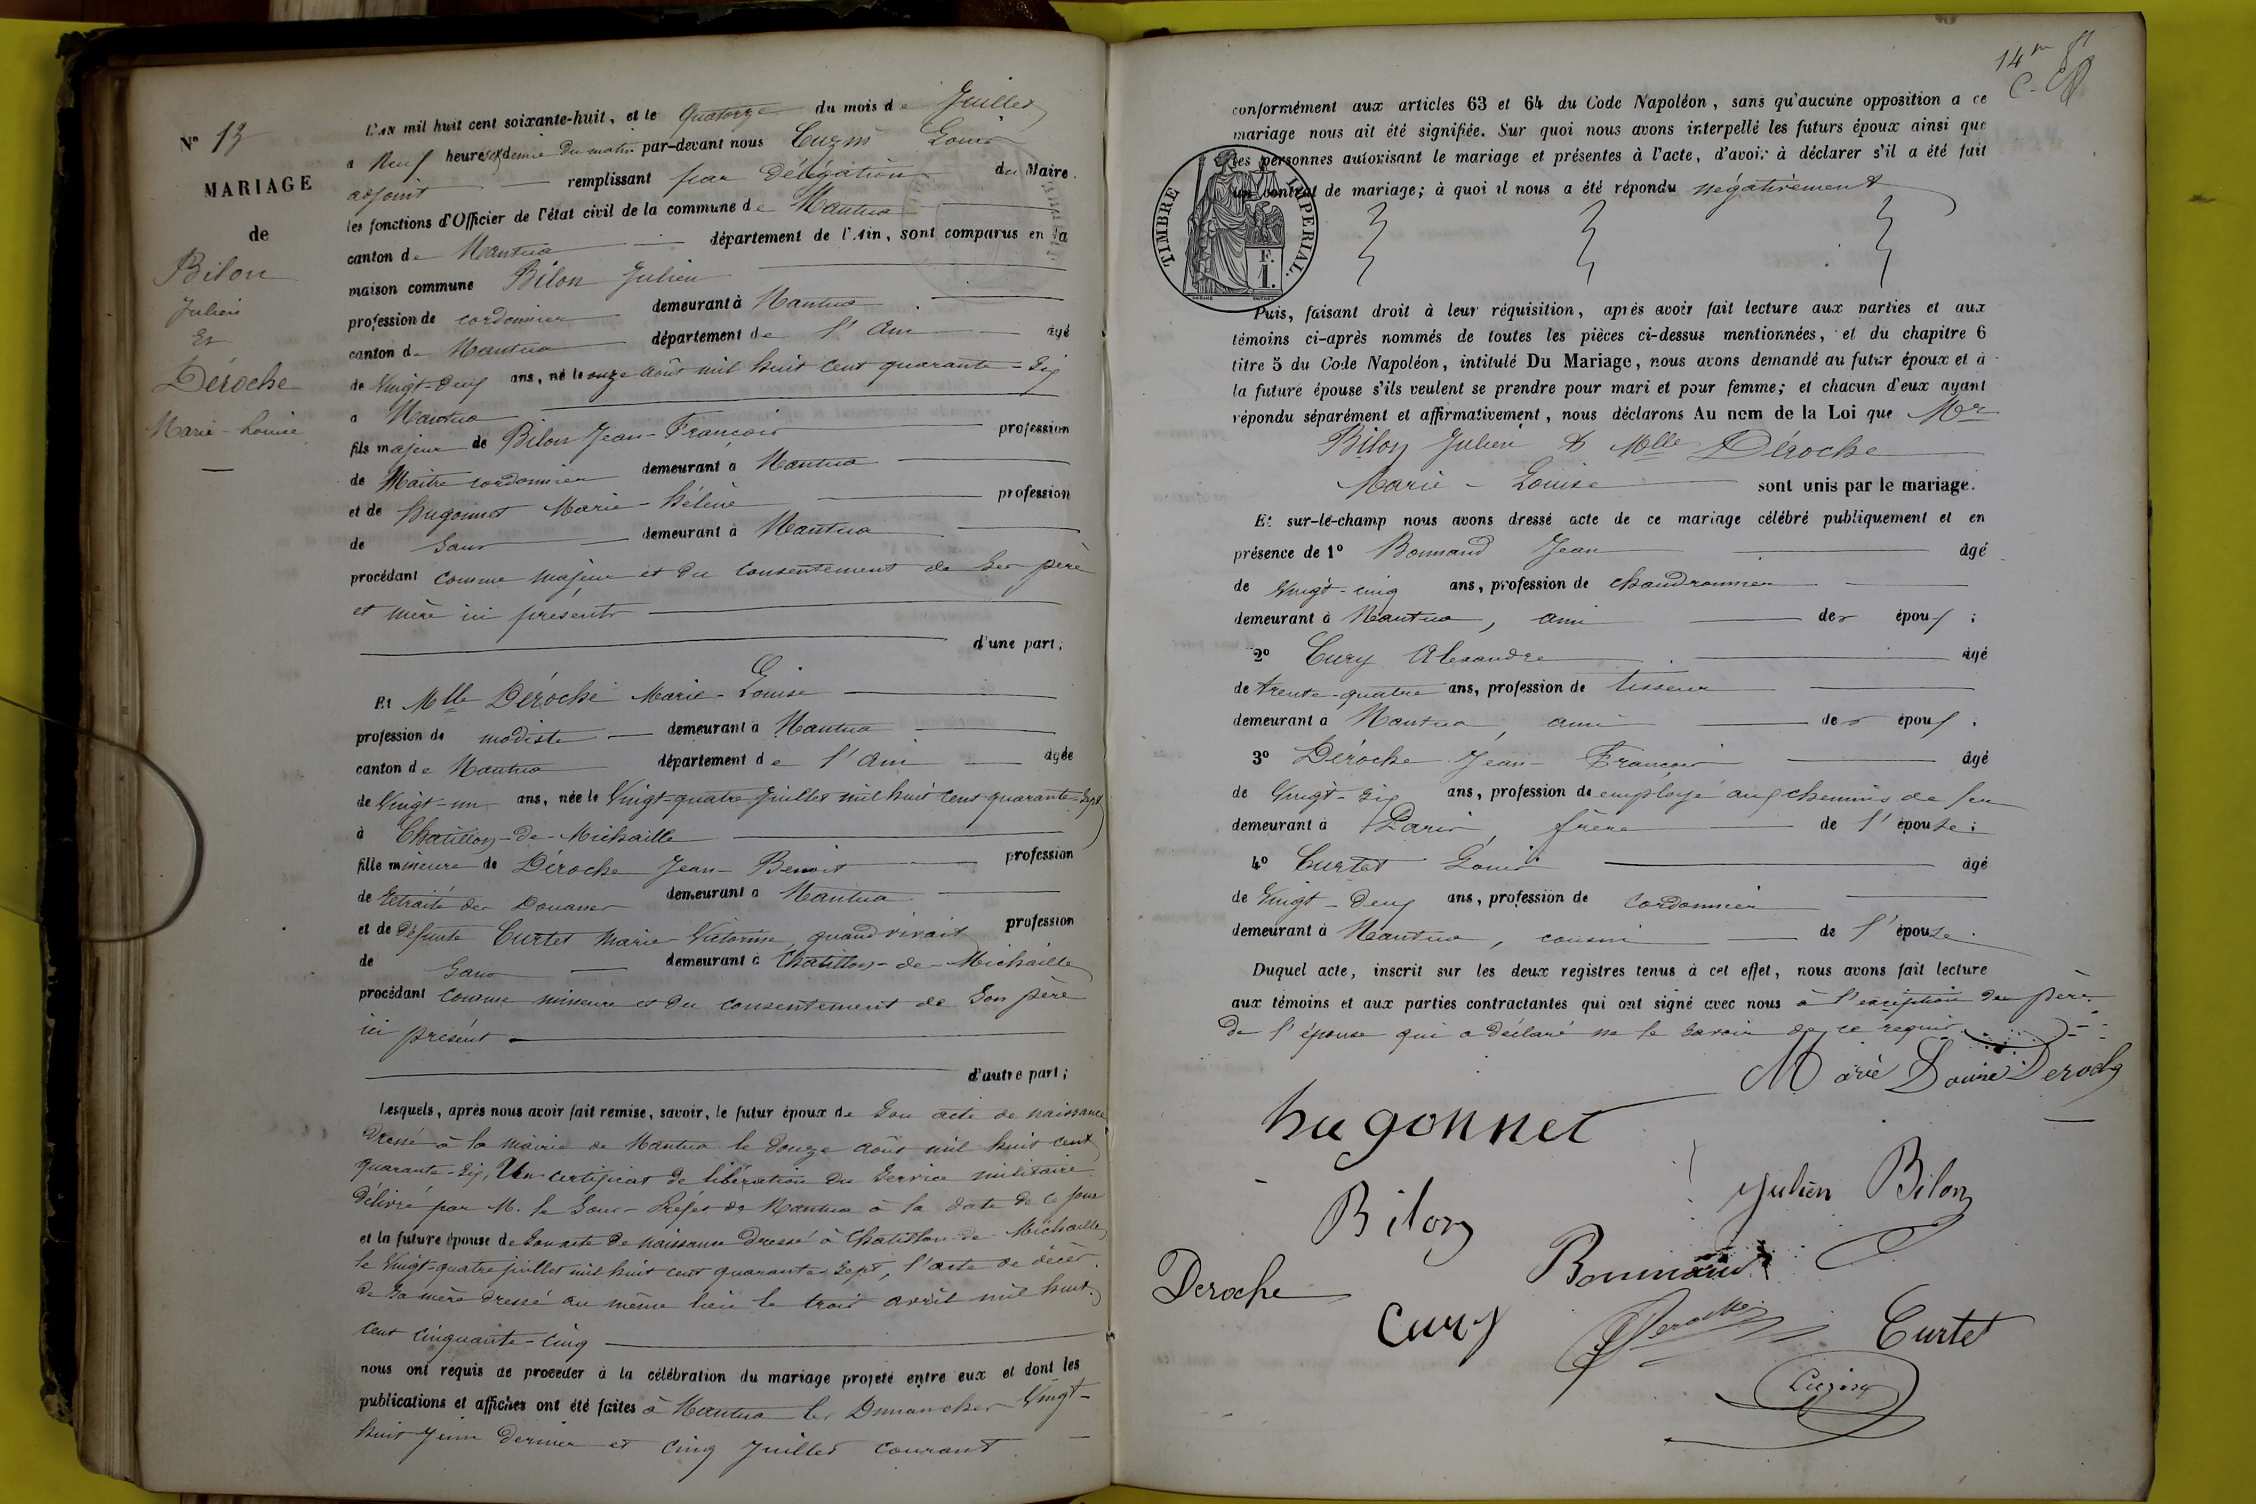 N° 13
MARIAGE
de
Bilon
Julien
Et
Déroche
Marie-Louise
L'an mil huit cent soixante-huit, et le Quatorze du mois de Juillet
à Neuf heures et demie du matin par-devant nous Louis
adjoint remplissant par Délégation du Maire.
les fonctions d'Officier de l'état civil de la commune de Nantua
canton de Nantua département de l'Ain, sont comparus en la
maison commune Bilon Julien
profession de cordonnier demeurant à Nantua
canton de Nantua département de l'Ain âgé
de Vingt-deux ans, né le onze août mil huit cent quarante-six
à Nantua
fils majeur de Bilon Jean-François profession
de Maître cordonnier demeurant à Nantua
et de hugonnet Marie-hélène profession
de Sans demeurant à Nantua
procédant comme majeur et du consentement de ses père
et mère ici présents
d'une part;
Et Mlle Déroche Marie-Louise
profession de modiste demeurant à Nantua
canton de Nantua département de l'Ain âgée
de Vingt-un ans, née le Vingt-quatre juillet mil huit cent quarante-sept
à Chatillon-de-Michaille
fille mineure de Déroche Jean-Benoit profession
de Retraité des Douanes demeurant à Nantua
et de Défunte Curtet Marie Victorine, quand vivait profession
de Sans demeurant à Chatillon-de-Michaille
procédant comme mineure et du consentement de son père
ici présent
d'autre part;
Lesquels, après nous avoir fait remise, savoir, le futur époux de Son acte de naissance
Dressé à la mairie de Nantua le Douze août mil huit cent
quarante-six, Un certificat de libération du Service militaire
délivré par M. le Sous-Préfet de Nantua à la date de ce jour
et la future épouse de Son acte de naissance Dressé à Chatillon-de-Michaille
le Vingt-quatre juillet mil huit cent quarante-sept, l'acte de décès
de sa mère dressé au même lieu le trois avril mil huit
cent cinquante-cinq
nous ont requis de procéder à la célébration du mariage projeté entre eux et dont les
publications et affiches ont été faites à Nantua les Dimanches Vingt-
huit juin dernier et cinq Juillet courant
14
conformément aux articles 63 et 64 du Code Napoléon, sans qu'aucune opposition a ce
mariage nous ait été signifiée. Sur quoi nous avons interpellé les futurs époux ainsi que
les personnes autorisant le mariage et présentes à l'acte, d'avoir à déclarer s'il a été fait
un contrat de mariage; à quoi il nous a été répondu négativement
TIMBRE IMPERIAL.
F.
1.
Puis, faisant droit à leur réquisition, après avoir fait lecture aux parties et aux
témoins ci-après nommés de toutes les pièces ci-dessus mentionnées, et du chapitre 6
titre 5 du Code Napoléon, intitulé Du Mariage, nous avons demandé au futur époux et à
la future épouse s'ils veulent se prendre pour mari et pour femme; et chacun d'eux ayant
répondu séparément et affirmativement, nous déclarons Au nom de la Loi que Mr
Bilon Julien & Mlle Déroche
Marie-Louise sont unis par le mariage.
Et sur-le-champ nous avons dressé acte de ce mariage célébré publiquement et en
présence de 1° Bonnand Jean âgé
de Vingt-cinq ans, profession de chaudronnier
demeurant à Nantua, ami des époux;
2° Cury Alexandre âgé
de trente-quatre ans, profession de tisseur
demeurant à Nantua, ami des époux.
3° Déroche Jean-François âgé
de Vingt-six ans, profession de employé aux chemins de fer
demeurant à Paris, frère de l'épouse;
4° Curtet Louis âgé
de Vingt-deux ans, profession de cordonnier
demeurant à Nantua, cousin de l'épouse.
Duquel acte, inscrit sur les deux registres tenus à cet effet, nous avons fait lecture
aux témoins et aux parties contractantes qui ont signé avec nous à l'exception du père
de l'épouse qui a déclaré ne le savoir de ce requis
Marie Louise Deroche
hugonnet
Julien Bilon
Bilon
Bonnand
Deroche
Cury
Deroche
Curtet